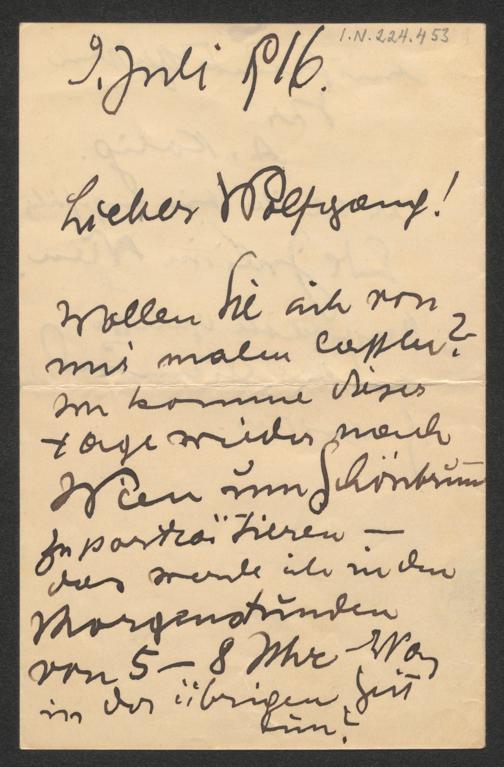 I.N. 224.453
9. Juli 916.
Lieber Wolfgang!
Wollen Sie sich von
mir malen lassen?
Ich komme dieser
Tage wieder nach
Wien um Schönbrunn
zu porträtieren —
das werde ich in den
Morgenstunden
von 5 – 8 Uhr – Was
in der übrigen Zeit
tun?